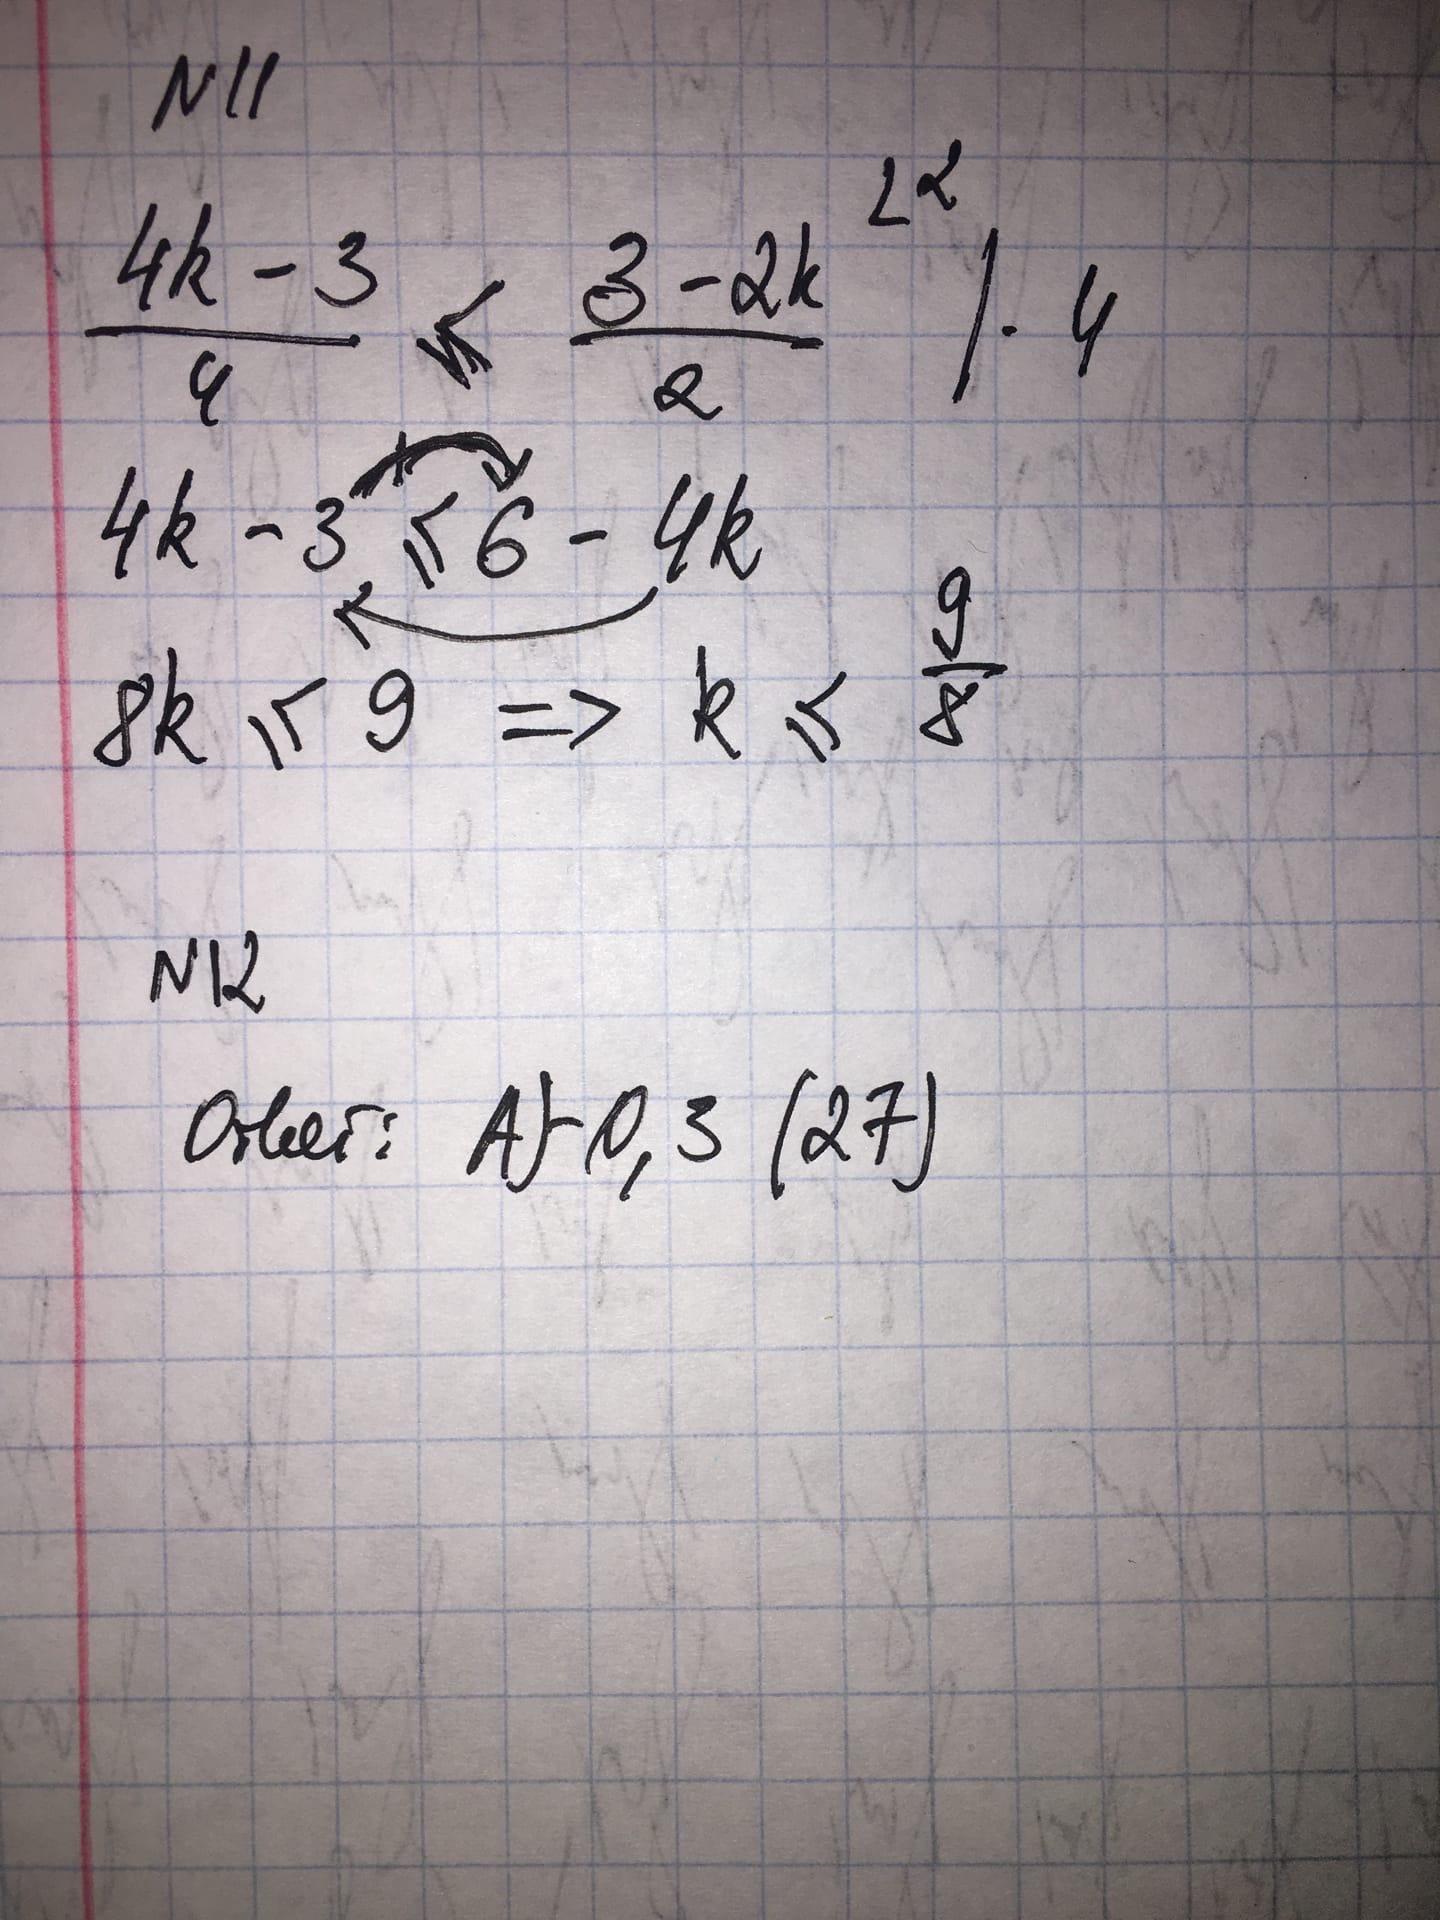 N11
4k - 3 / 4 ⩽ 3 - 2k / 2 ∠2 / · 4
4k - 3 ⩽ 6 - 4k
8k ⩽ 9 => k ⩽ 9/8
N12
Ответ: A) - 0,3 (27)